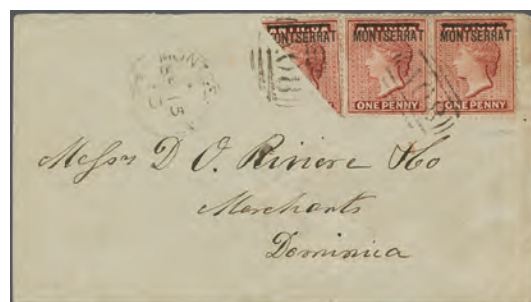 MONTSERRAT MONTSERRAT MONTSERRAT
ONE PENNY ONE PENNY
Messrs D. O. Riviere & Co
Merchants
Dominica